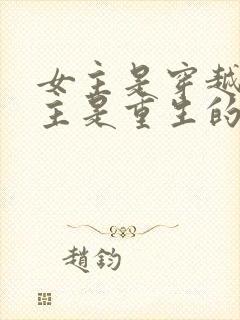 女主是穿越
主是重生的
趙鈞